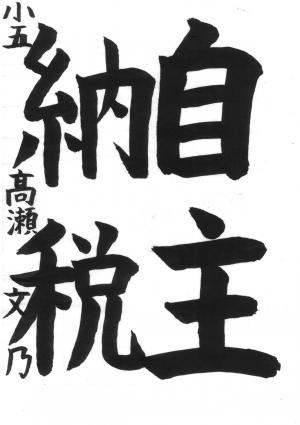 自主
納税
小五 髙瀬 文乃